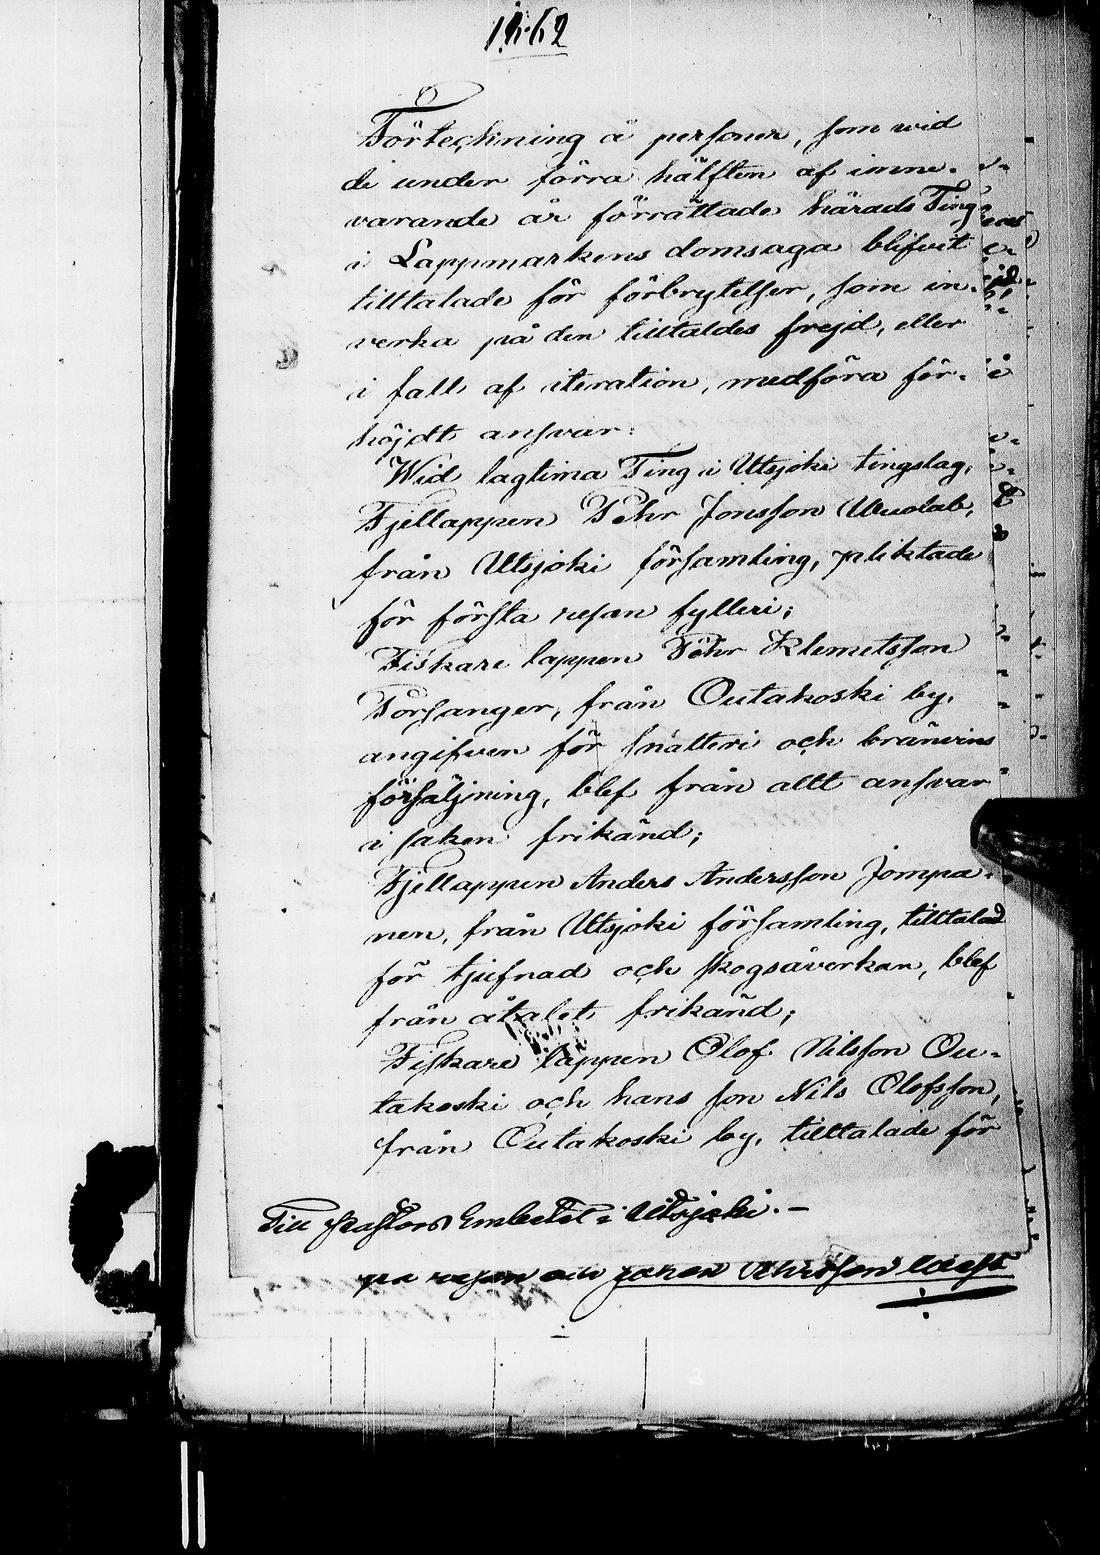 1862
Förteckning å personer, som wid
de under förra hälften af inne-
varande år förrättade härads Ting
i Lappmarkens domsaga blifvit
tilltalade för förbrytelser, som in-
verka på den tilltaldes frejd, eller
i fall af iteration, medföra för-
höjdt ansvar:
Wid lagtima Ting i Utsjoki tingslag,
Fjellappen Pehr Jonsson
från Utsjoki församling, pliktade
för första resan fylleri;
Fiskare lappen Pehr Klemetsson
Porsanger, från Outakoski by,
angifven för snatteri och bränvins
försäljning, blef från allt ansvar
i saken frikänd;
Fjellappen Anders Andersson Jompa-
nen, från Utsjoki församling, tilltalad
för tjufnad och skogsåverkan, blef
från åtalet frikänd;
Fiskare lappen Olof Nilsson Ou-
takoski och hans son Nils Olofsson,
från Outakoski by, tilltalade för
Till Pastors Embetet i Utsjoki.-
på resan och